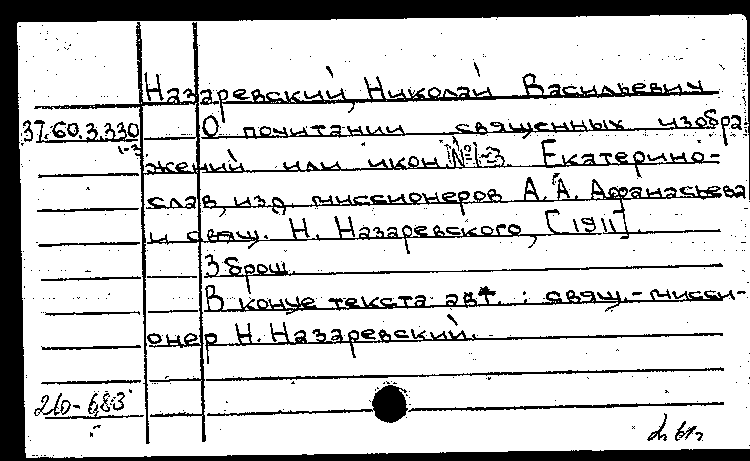 Назаревский, Николай Васильевич
37.60.3.330 О почитании священных изобра
1-3
жений или икон №1-3. Екатерино-
слав, изд. миссионеров А. А. Афанасьева
и свящ. Н. Назаревского, [1911].
3 брош.
В конце текста авт. : свящ.-мисси-
онер Н. Назаревский.
210-683